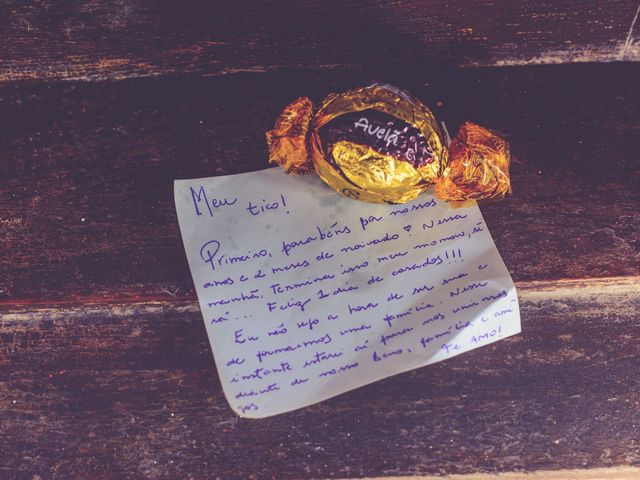 Avelã
Meu tico!
Primeiro, parabéns por nossos
anos e 2 meses de noivado ♡ Nessa
manhã, termina isso meu momow,
rá... Feliz 1 dia de casados!!!
Eu não vejo a hora de ser sua e
de formarmos uma família. Nesse
instante estarei aí para nos unirmos
diante de nosso Deus, família e ami
gos. TE AMO!